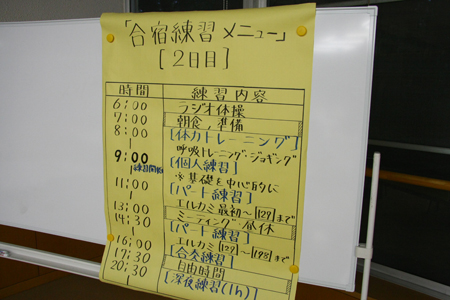 「合宿練習メニュー」
[2日目]
時間 練習内容
6:00 ラジオ体操
7:00 朝食、準備
8:00 [体力トレーニング]
呼吸トレーニング・ジョギング
9:00 [個人練習]
練習開始 ※基礎を中心的に
11:00 [パート練習]
エルカミ 最初〜127まで
13:00 ミーティング・昼休
14:30 [パート練習]
エルカミ 127〜198まで
16:00 [合奏練習]
17:30 自由時間
20:30 [深夜練習(1h)]